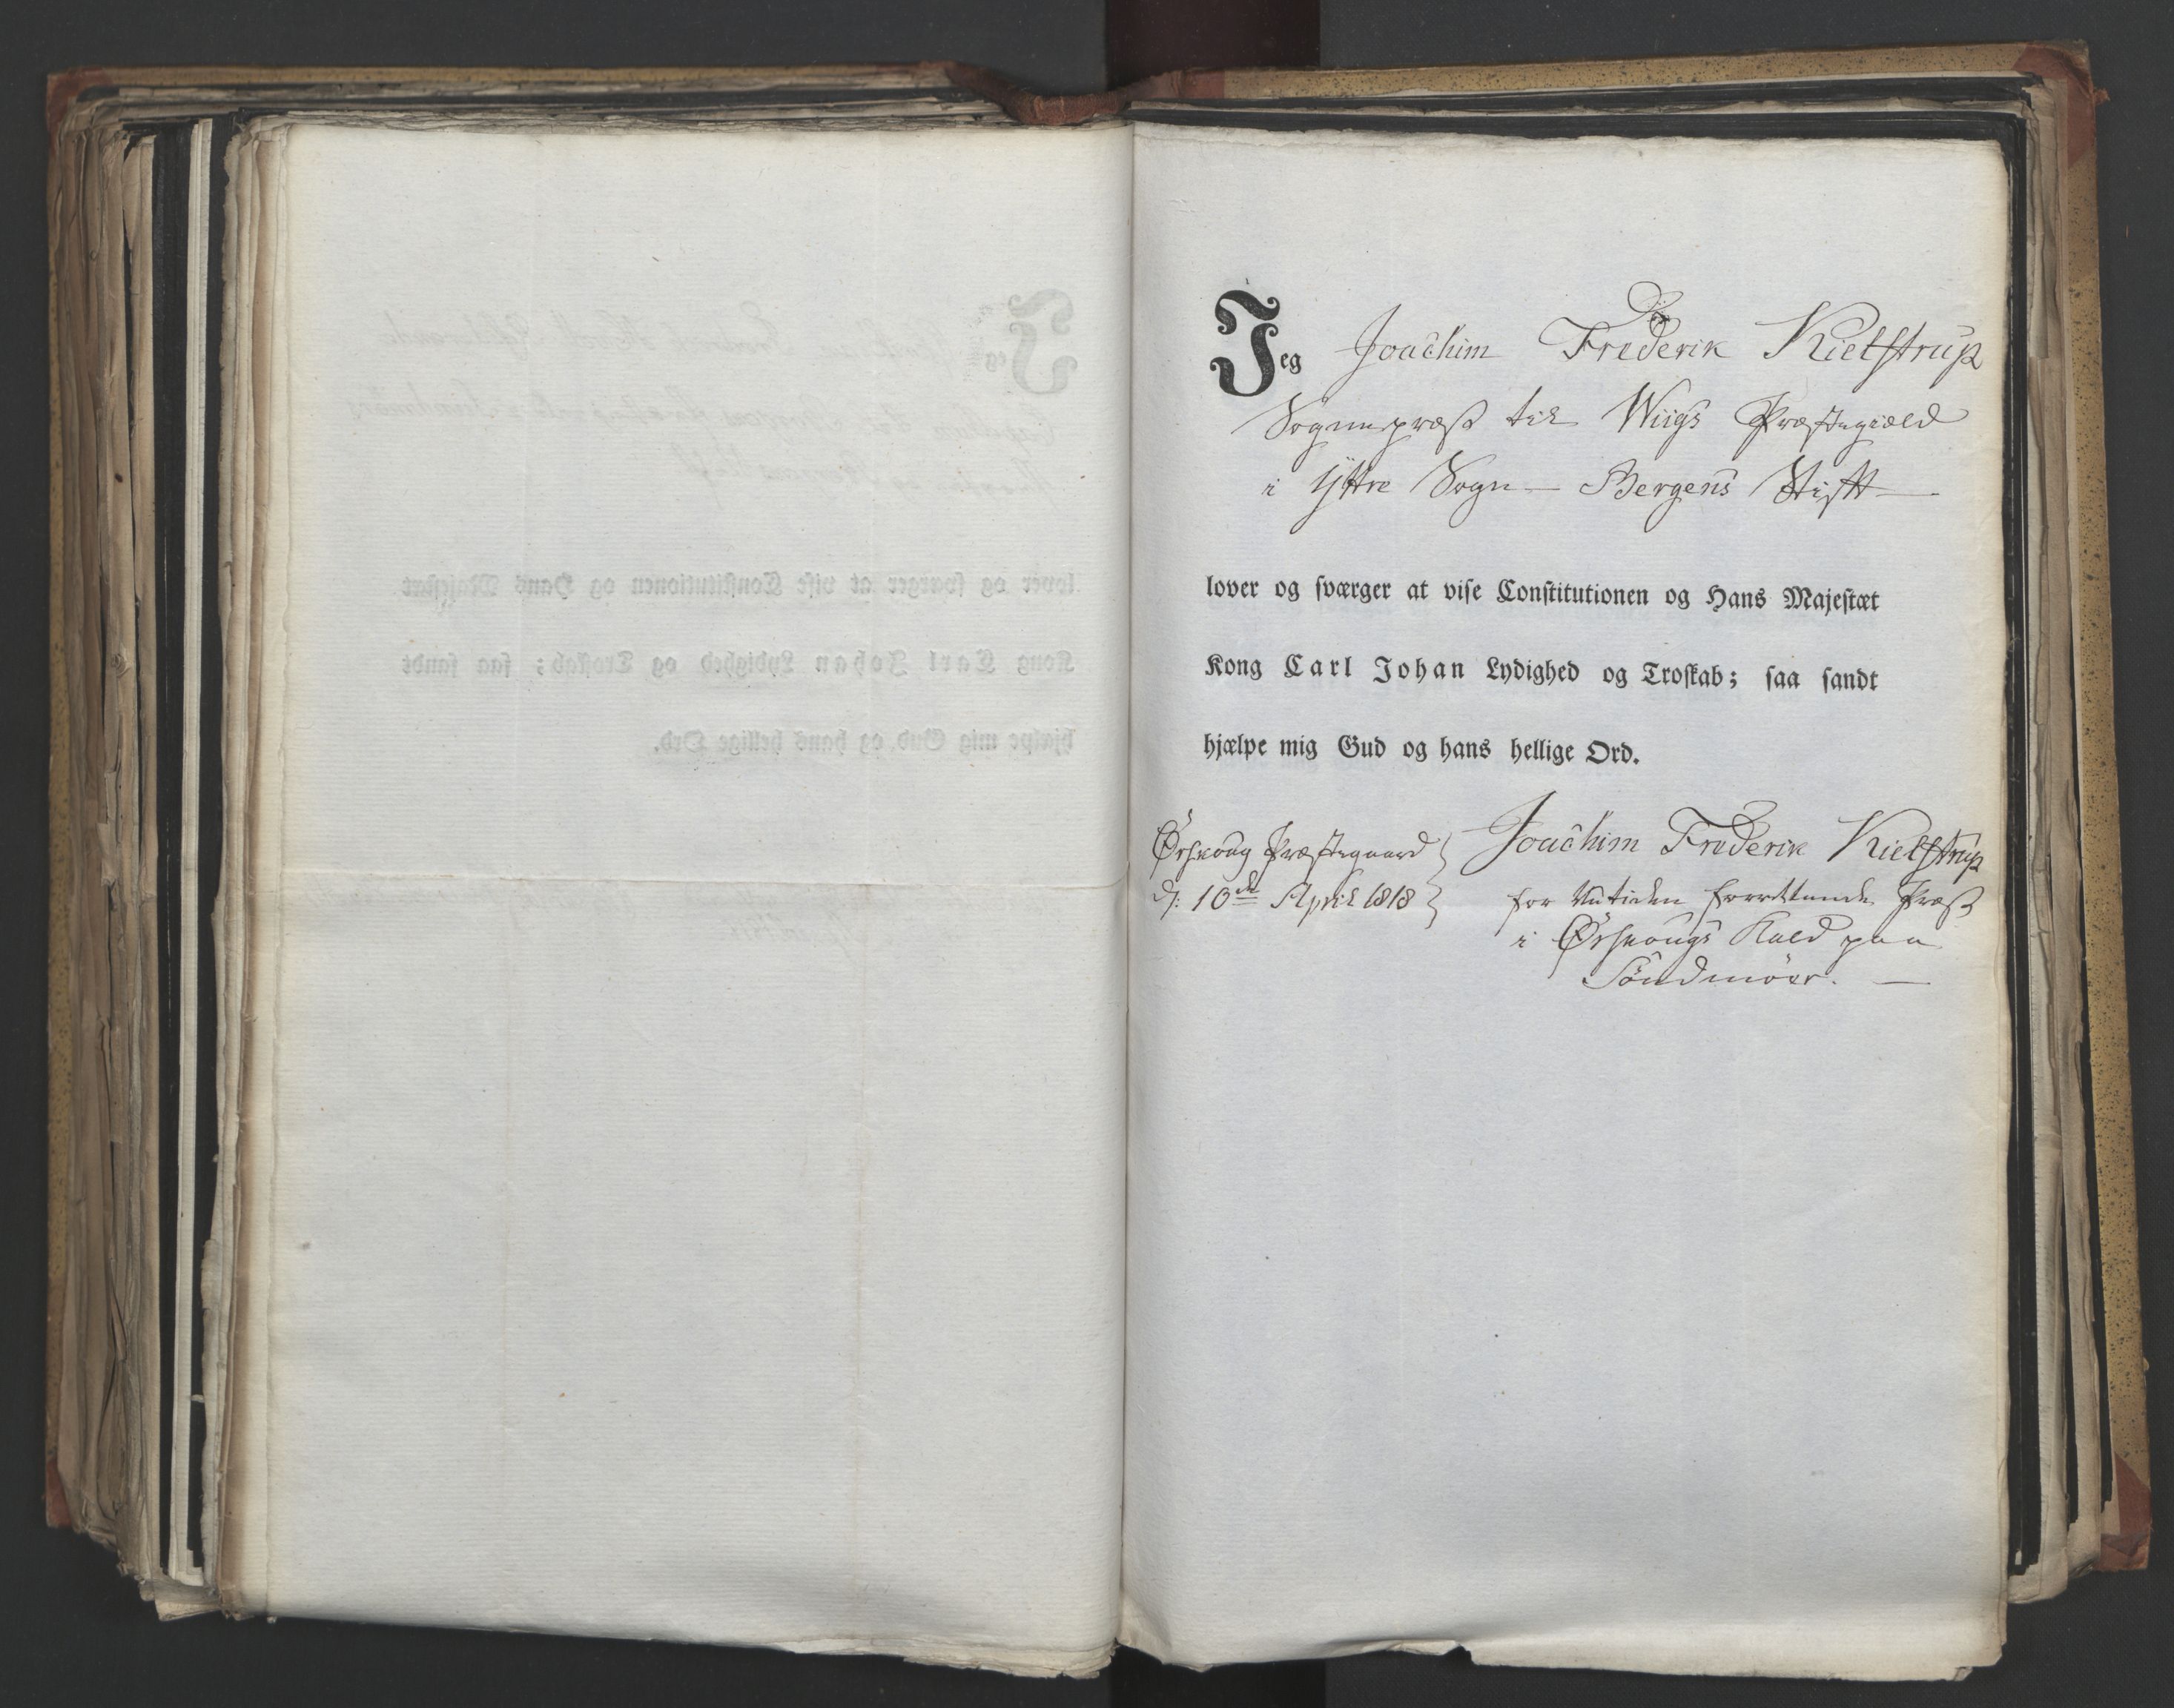 Jeg Joachim Frederik Kielstrup
Sognepræst til Wiigs Præstegield
i Ÿttre Sogn — Bergens Stift —
lover og sværger at vise Constitutionen og Hans Majestæt
Kong Carl Johan Lydighed og Troskab; saa sandt
hjælpe mig Gud og hans hellige Ord.
Ørskoug Præstegaard
d: 10de April 1818
Joachim Frederik Kielstrup
for Nutiden forrettende Præst
i Ørskougs Kald paa
Søndmöer. —